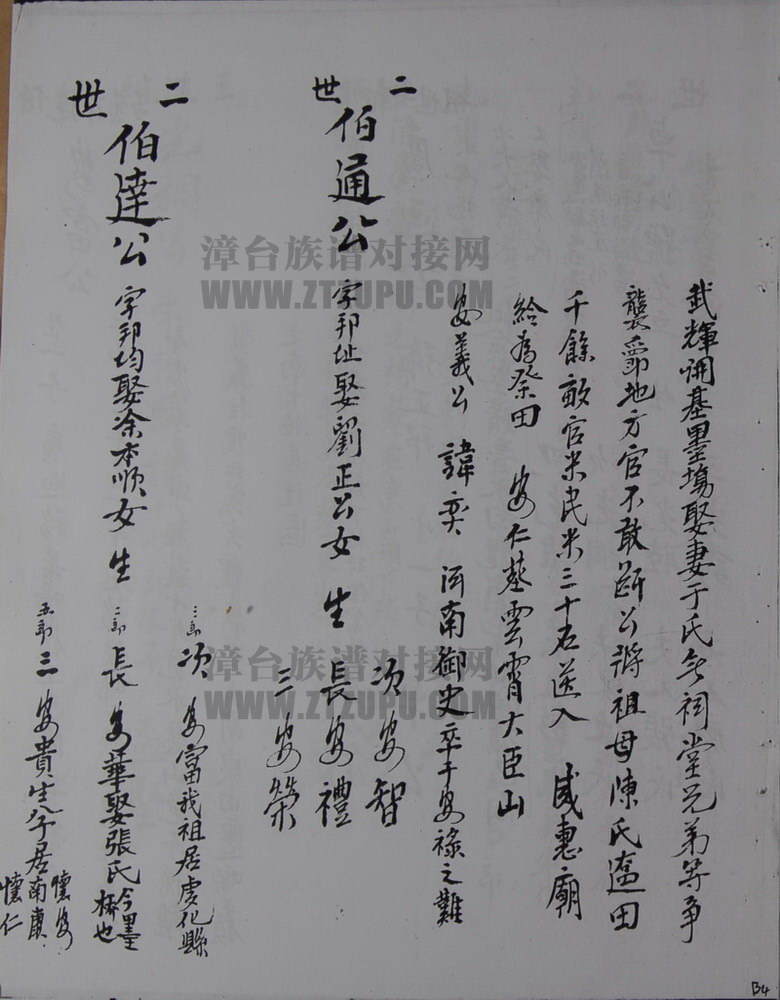 武輝開基墨場娶妻于氏 祠堂兄弟等爭
襲爵地方官不敢斷公將祖母陳氏 田
千餘畝官米民米三十石送入 威惠廟
給為祭田 安仁墓雲霄大臣山
安義公 諱奕 河南御史卒于安祿之難
二世
伯通公 字邦址娶劉正公女 生
次安智
長安禮
三安榮
二世
伯達公 字邦均娶涂本順女 生
二郎 次 安富我祖居虔化縣
二郎 長 安華娶張氏今墨 也
五郎 三 安貴生 居南康
懷安
懷仁
漳台族谱对接网
WWW.ZTZUPU.COM
漳台族谱对接网
WWW.ZTZUPU.COM
B4